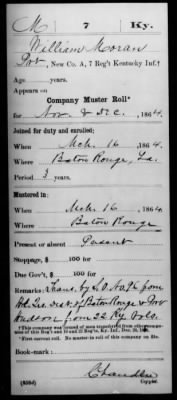 M 7 Ky.
William Moran
Pvt, New Co. A, 7 Reg't Kentucky Inf.†
Age years.
Appears on
Company Muster Roll*
for Nov & Dec, 1864.
Joined for duty and enrolled:
When Mch. 16, 1864.
Where Baton Rouge, La.
Period 3 years.
Mustered in:
When Mch. 16, 1864.
Where Baton Rouge
Present or absent Present
Stoppage, $ 100 for
Due Gov't, $ 100 for
Remarks: Trans. by S.O. No. 96 from
Hd. Qrs. Dist. of Baton Rouge & Port
Hudson from 22 Ky. Vols.
†This company was formed of men transferred from other companies of this Reg't and
*First current roll. No muster-in roll of this company on file.
Book mark:
Chandler
(858d) Copyist.